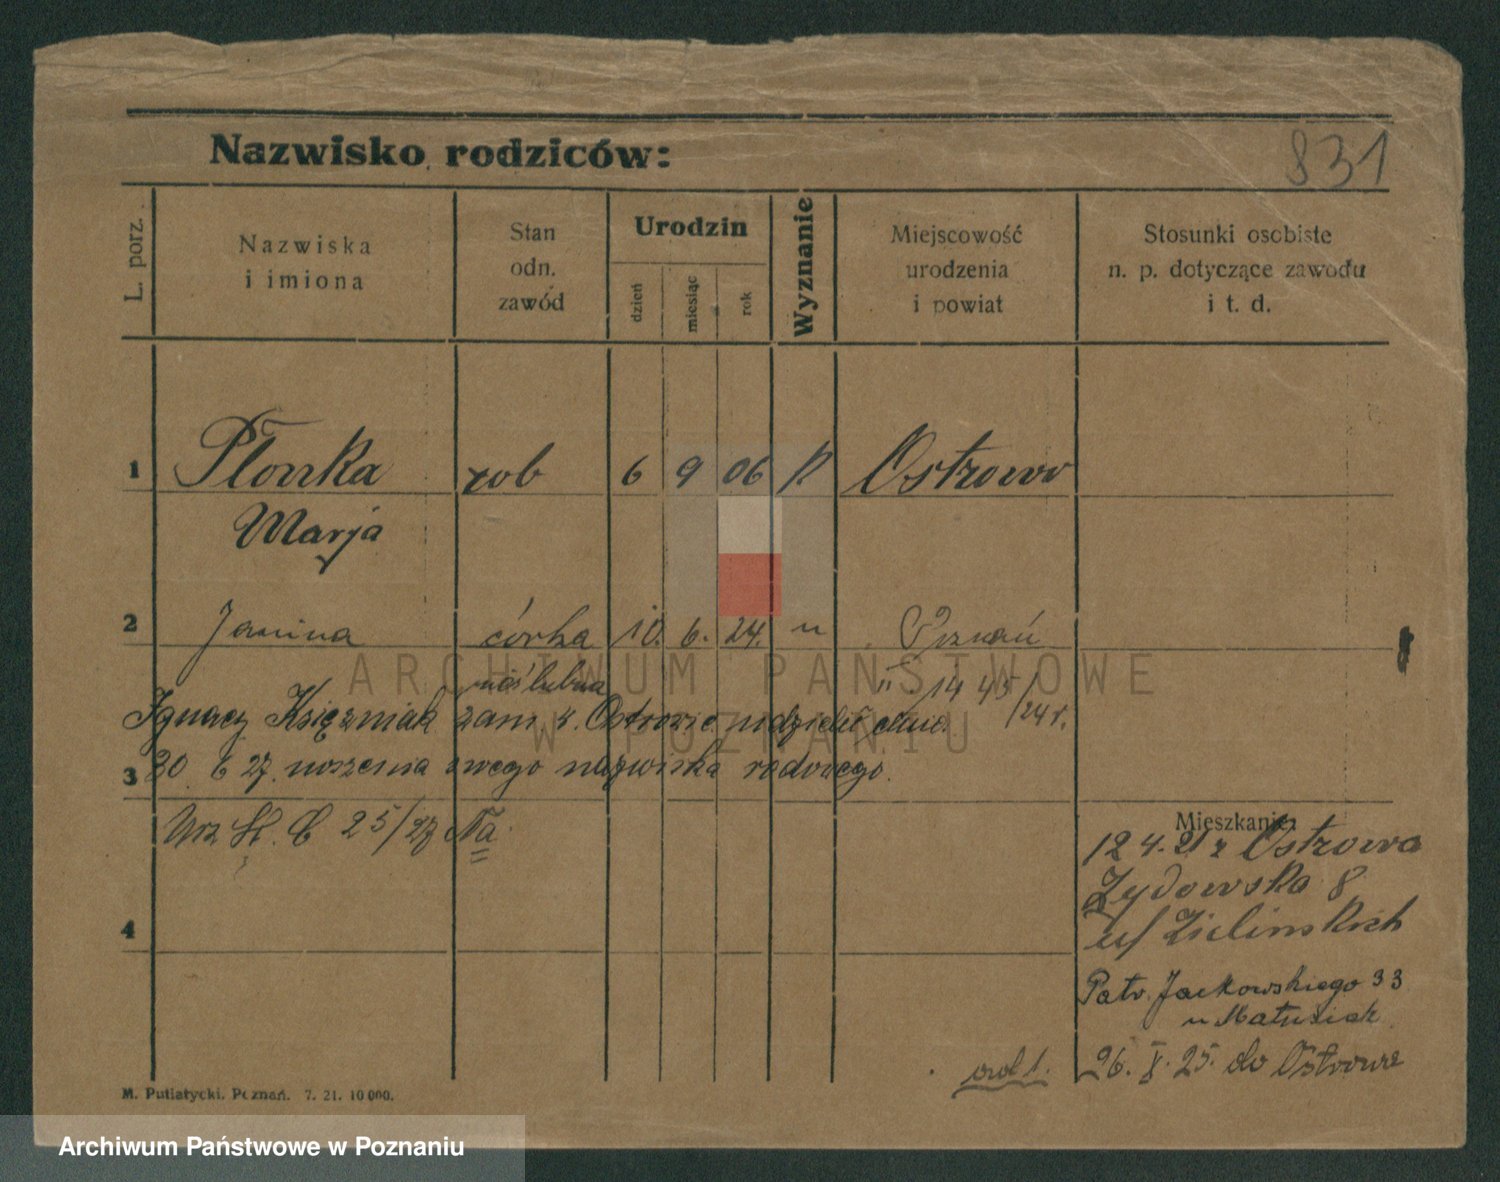 831
Nazwisko rodziców:
L. porz.
Nazwiska
i imiona
Stan
odn.
zawód
Urodzin
dzień
miesiąc
rok
Wyznanie
Miejscowość
urodzenia
i powiat
Stosunki osobiste
n. p. dotyczące zawodu
i t. d.
1 Płonka rob 6 9 06 k Ostrowo
Marja
2 Janina córka 10. 6. 24. " Poznań
nieślubna " 1445/24 r.
Ignacy Księżniak zam. w Ostrowie udzielił dnia
3 30 6 27 noszenia swego nazwiska rodowego.
Urz St. C 25/27 Na
Mieszkanie:
12 4. 21 z Ostrowa
Żydowska 8
u/ Zielinskich
4
Patr. Jackowskiego 33
u Matusiak
26. X. 25. do Ostrowa
M. Putiatycki. Poznań. 7. 21. 10 000.
ARCHIWUM PAŃSTWOWE
W POZNANIU
Archiwum Państwowe w Poznaniu